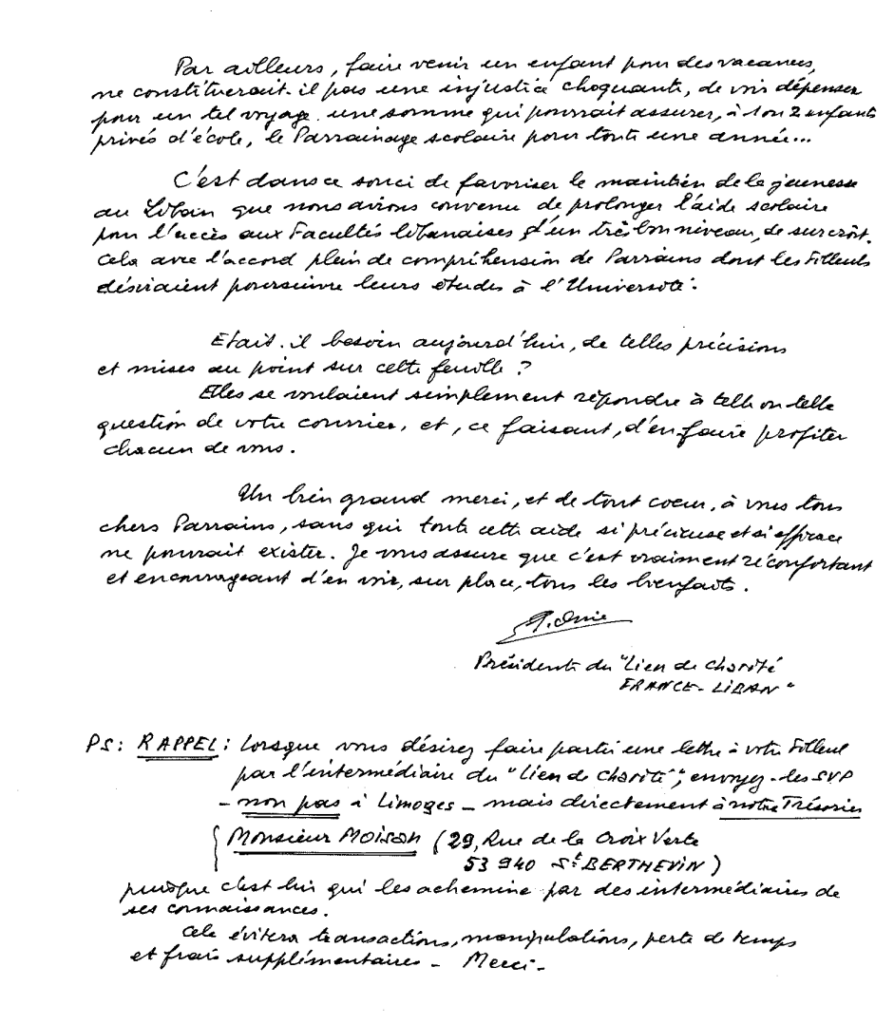 Par ailleurs, faire venir un enfant pour des vacances,
ne constituerait-il pas une injustice choquante, de voir dépenser
pour un tel voyage une somme qui pourrait assurer, à 1 ou 2 enfants
privés d'école, le Parrainage scolaire pour toute une année...
C'est dans ce souci de favoriser le maintien de la jeunesse
au Liban que nous avions convenu de prolonger l'aide scolaire
pour l'accès aux Facultés libanaises d'un très bon niveau, de surcroît.
Cela avec l'accord plein de compréhension de Parrains dont les Filleuls
désiraient poursuivre leurs études à l'Université.
Etait-il besoin aujourd'hui, de telles précisions
et mises au point sur cette feuille ?
Elles se voulaient simplement répondre à telle ou telle
question de votre courrier, et, ce faisant, d'en faire profiter
chacun de vous.
Un bien grand merci, et de tout coeur, à vous tous
chers Parrains, sans qui toute cette aide si précieuse et si efficace
ne pourrait exister. Je vous assure que c'est vraiment réconfortant
et encourageant d'en voir, sur place, tous les bienfaits.
Présidente du "Lien de Charité
FRANCE-LIBAN"
PS: RAPPEL: Lorsque vous désirez faire partir une lettre à votre Filleul
par l'intermédiaire du "Lien de Charité", envoyez-les SVP
- non pas à Limoges - mais directement à notre Trésorier
Monsieur MOISAN (29, Rue de la Croix Verte
53 940 St BERTHEVIN)
puisque c'est lui qui les achemine par des intermédiaires de
ses connaissances.
Cela évitera transactions, manipulations, perte de temps
et frais supplémentaires - Merci -